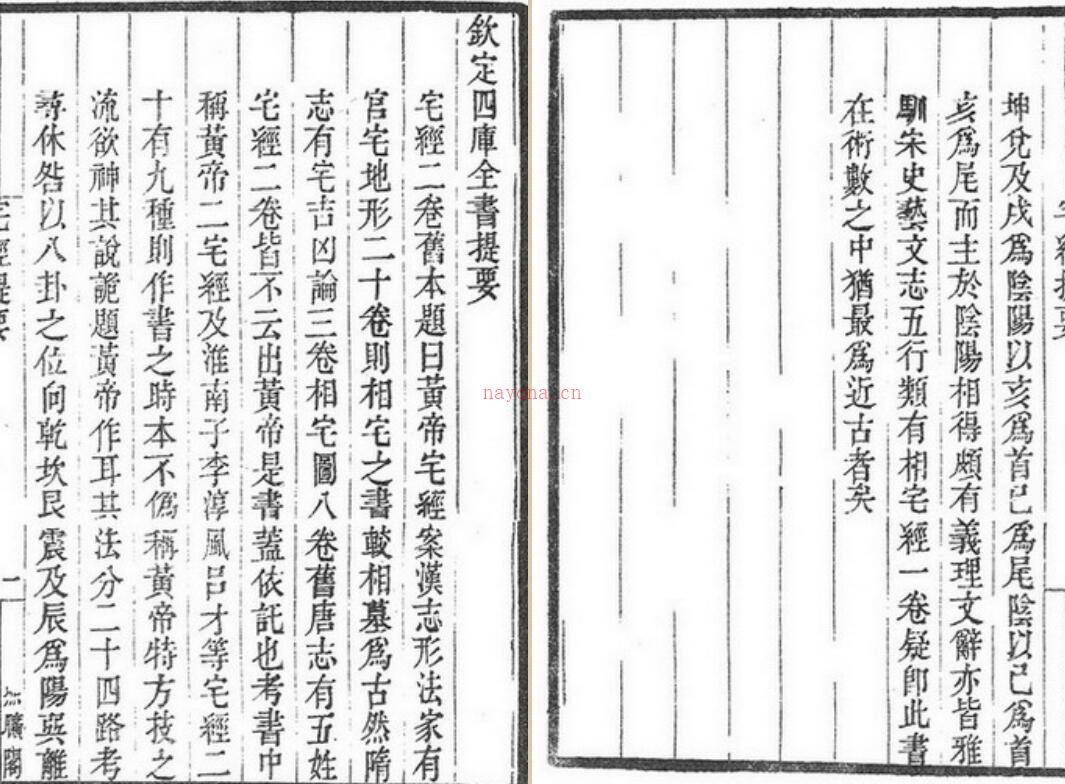 欽定四庫全書提要
宅經二卷舊本題曰黃帝宅經案漢志形法家有
官宅地形二十卷則相宅之書較相墓爲古然隋
志有宅吉凶論三卷相宅圖八卷舊唐志有五姓
宅經二卷皆不云出黃帝是書蓋依託也考書中
稱黃帝二宅經及淮南子李淳風呂才等宅經二
十有九種則作書之時本不僞稱黃帝特方技之
流欲神其說詭題黃帝作耳其法分二十四路考
尋休咎以八卦之位向乾坎艮震及辰爲陽巽離
宅經提要
二
坤兌及戌爲陰陽以亥爲首巳爲尾陰以巳爲首
亥爲尾而主於陰陽相得頗有義理文辭亦皆雅
馴宋史藝文志五行類有相宅經一卷疑卽此書
在術數之中猶最爲近古者矣
nayona.cn